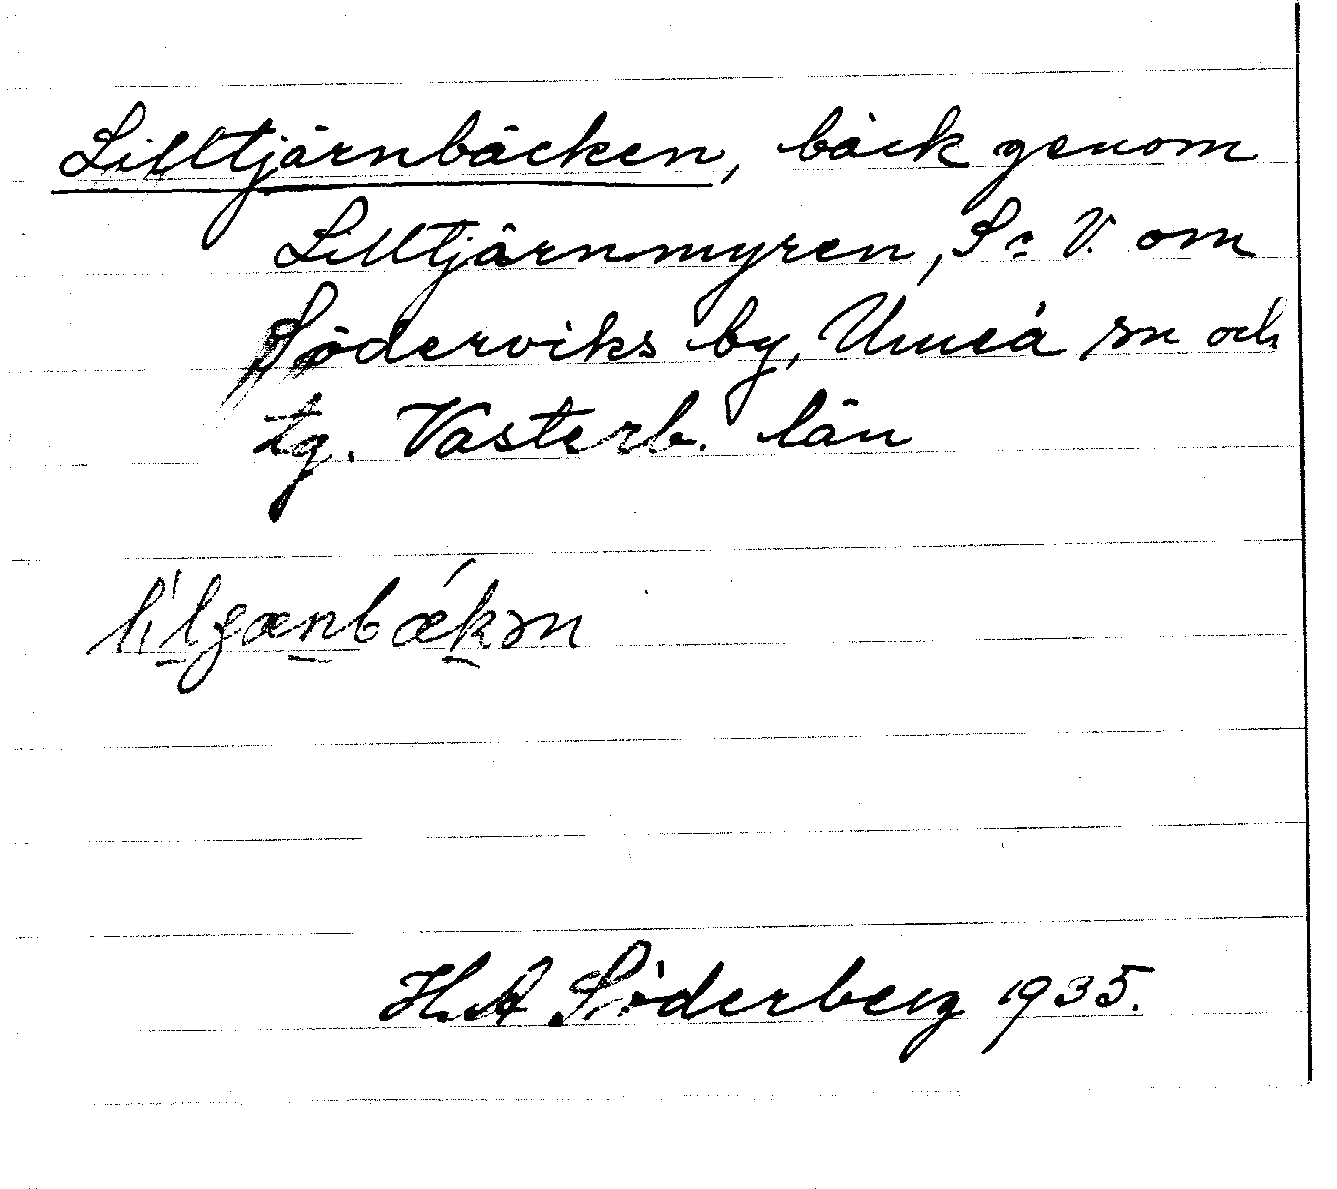 Lilltjärnbäcken, bäck genom
Lilltjärnmyren, S: V. om
Söderviks by, Umeå sn och
tg. Västerb. län
H.A Söderberg 1935.